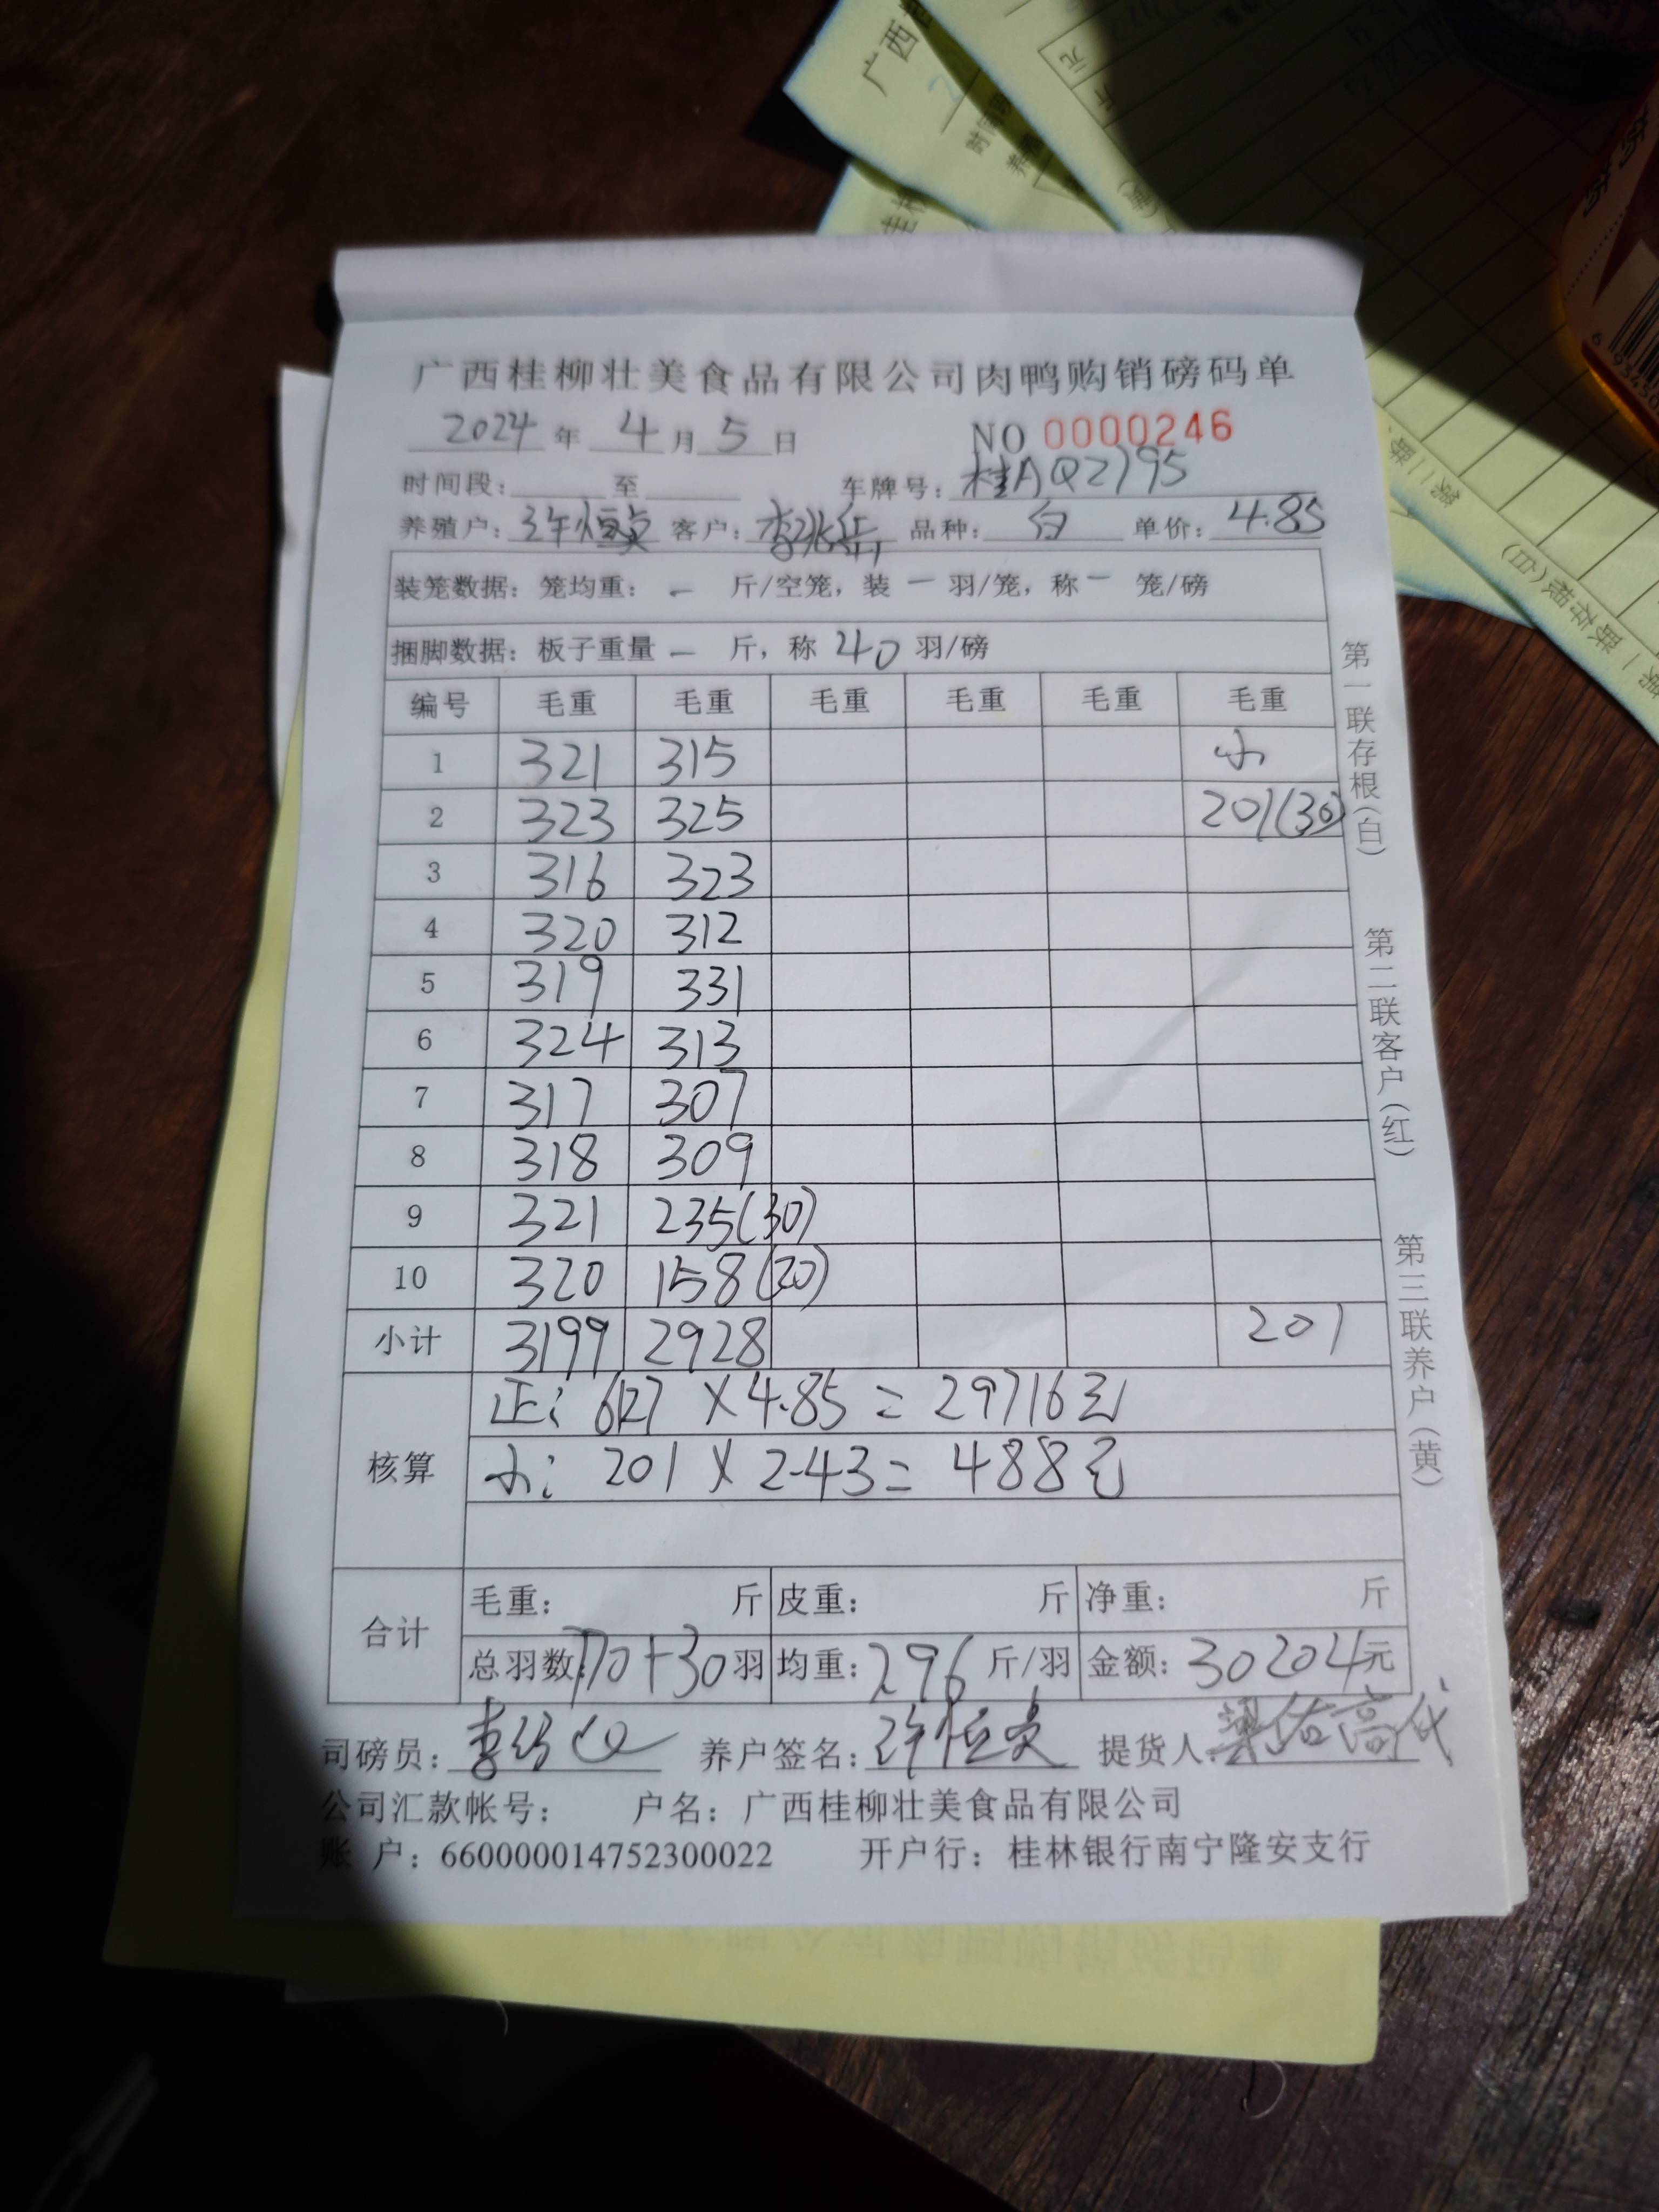 广西桂柳壮美食品有限公司肉鸭购销磅码单
2024 年 4 月 5 日 NO 0000246
时间段: 至 车牌号: 桂AQ2795
养殖户: 许恒 客户: 李兆 品种: 白 单价: 4.85
装笼数据: 笼均重: - 斤/空笼, 装 - 羽/笼, 称 - 笼/磅
捆脚数据: 板子重量 - 斤, 称 40 羽/磅
编号 毛重 毛重 毛重 毛重 毛重 毛重
1 321 315 小
2 323 325 201(30)
3 316 323
4 320 312
5 319 331
6 324 313
7 317 307
8 318 309
9 321 235(30)
10 320 158(20)
小计 3199 2928 201
核算
正: 6127 × 4.85 = 29716元
小: 201 × 2.43 = 488元
合计
毛重: 斤 皮重: 斤 净重: 斤
总羽数: 770+30 羽 均重: 7.96 斤/羽 金额: 30204 元
司磅员: 李 养户签名: 许恒 提货人:
公司汇款帐号: 户名: 广西桂柳壮美食品有限公司
账 户: 660000014752300022 开户行: 桂林银行南宁隆安支行
第一联存根(白)
第二联客户(红)
第三联养户(黄)